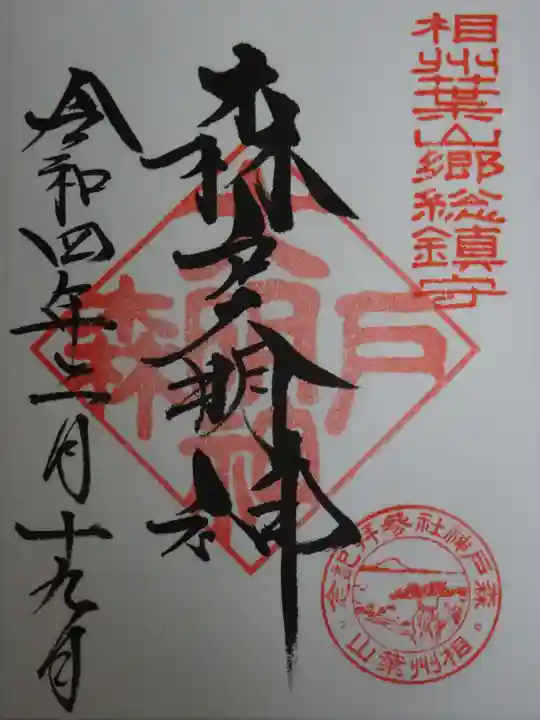 相州葉山郷総鎮守
森戸大明神
森戸大明神
令和四年三月十九日
森戸神社參拝記念
相州葉山